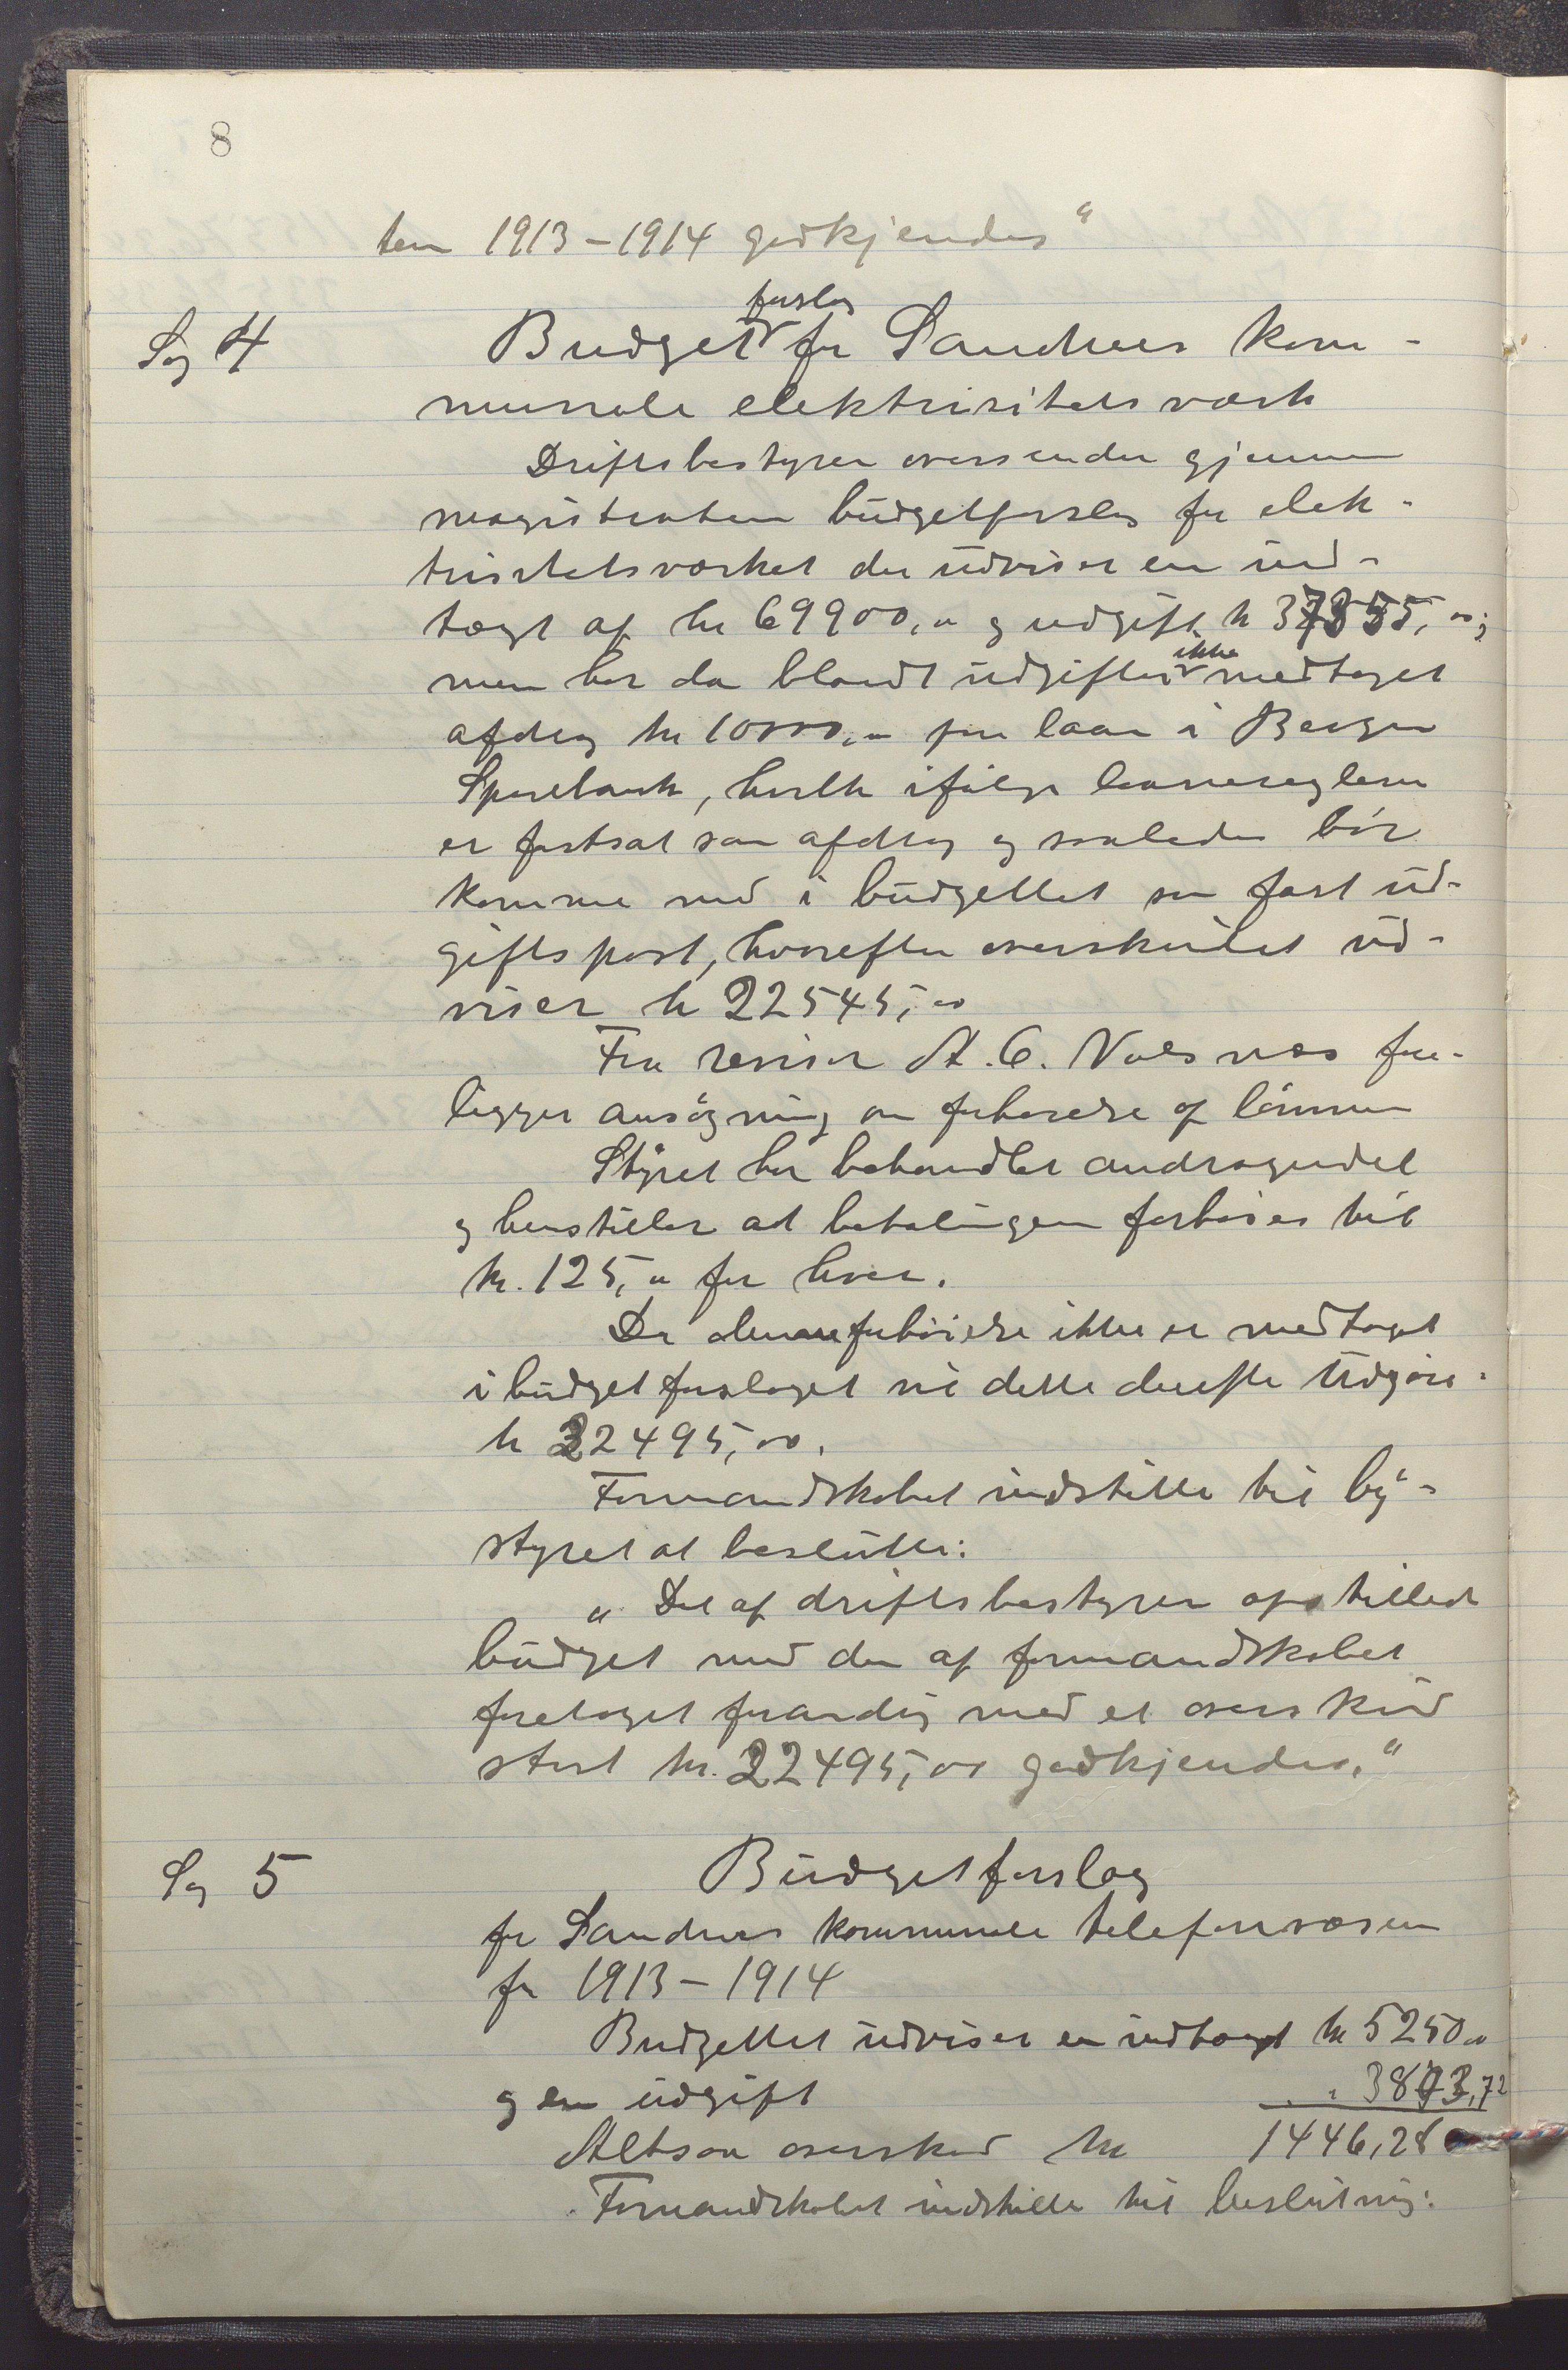 8
ten 1913-1914 godkjendes"
Sag 4
forslag
Budget for Sandnes kom-
munale elektrisitetsværk
Driftsbestyrer oversender gjennem
magistraten budgetforslag for elek-
trisitetsværket der udviser en ind-
tægt af kr 69900,00 og udgift kr 37355,00;
ikke
men har da blandt udgifter medtaget
afdrag kr 10000,00 paa laan i Bergen
Sparebank, hvilke ifølge laanereglerne
er fastsat som afdrag og saaledes bør
komme med i budgettet som fast ud-
giftspost, hvorefter overskudet ud-
viser kr 22545,00
Fra revisor A. C. Næsnes fore-
ligger ansøgning om forhøielse af lønnen
Styret har behandlet andragendet
og henstiller at betalingen forhøies til
kr. 125,00 for hver.
Da denne forhøielse ikke er medtaget
i budgetforslaget vil dette derefter udgjøre
kr 22495,00.
Formandskabet indstiller til by-
styret at beslutte:
"Det af driftsbestyrer opstillede
budget med den af formandskabet
foretaget forandring med et overskud
stort kr. 22495,00 godkjendes."
Sag 5
Budgetforslag
for Sandnes kommunale telefonvæsen
for 1913-1914
Budgettet udviser en indtægt kr 5250,00
og en udgift " 3803,72
Altsaa overskud kr 1446,28
Formandskabet indstiller til beslutning: